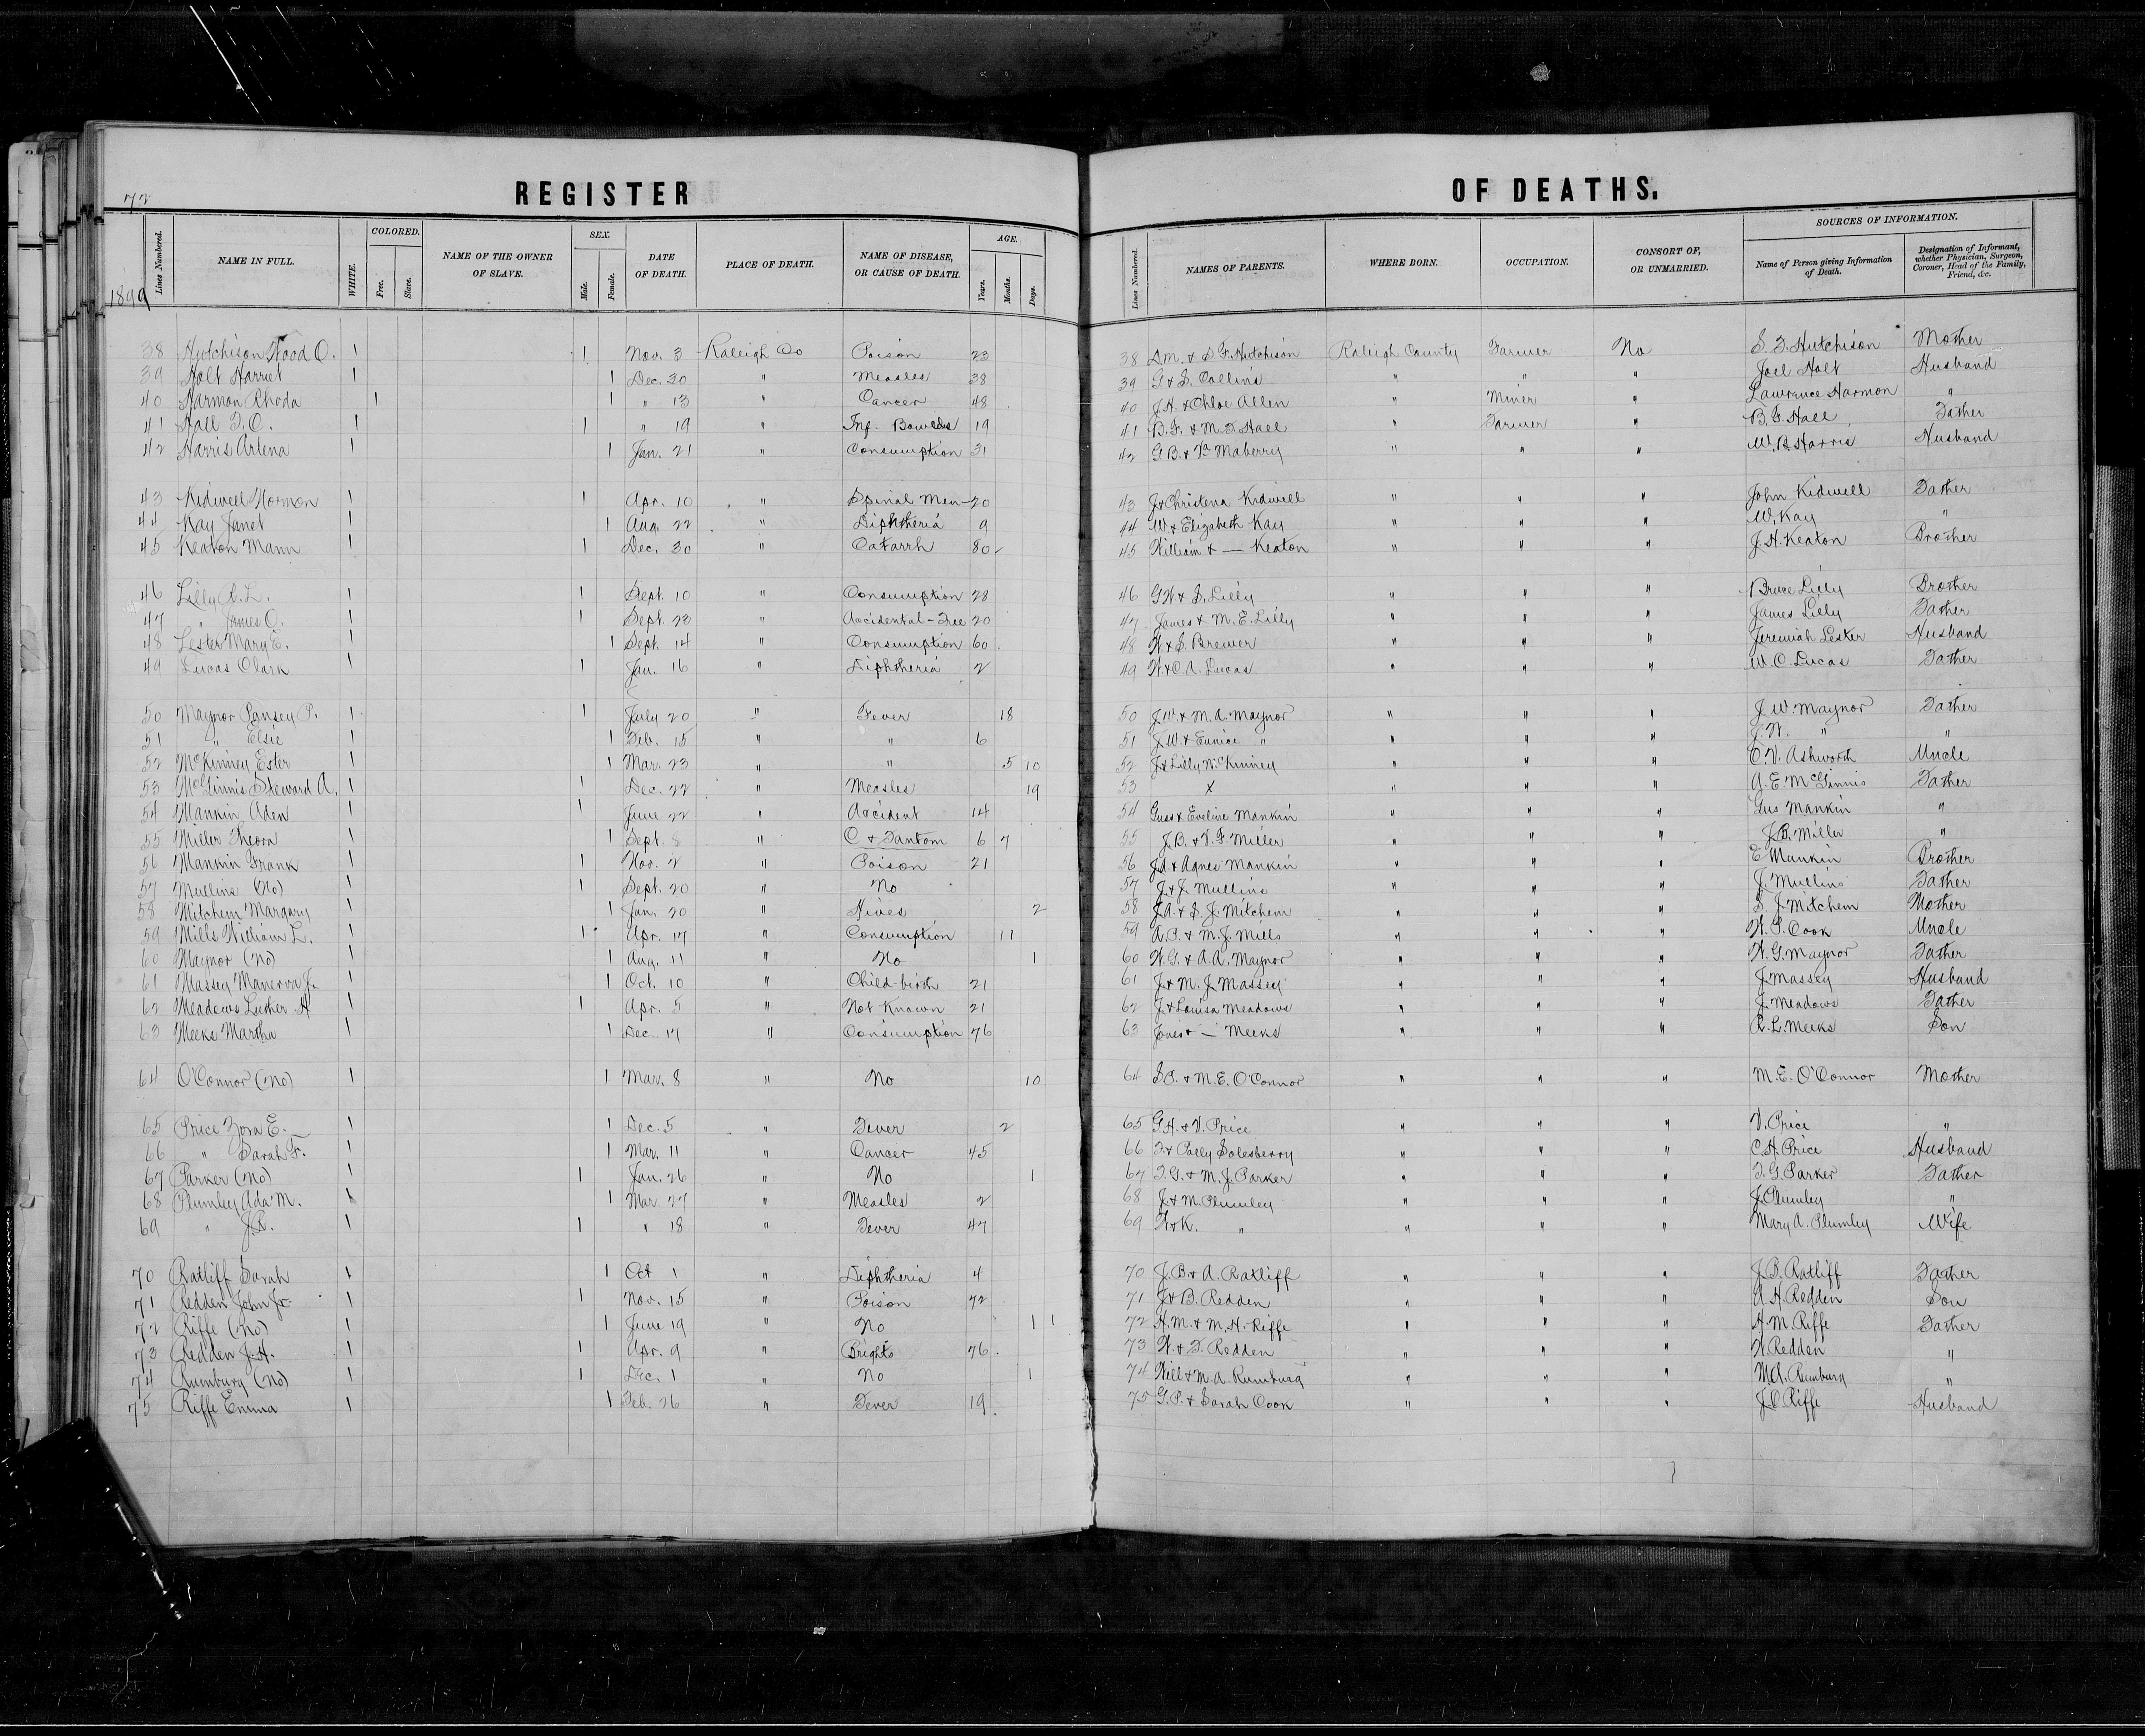 72
REGISTER OF DEATHS.
1899
Lines Numbered. NAME IN FULL. WHITE. COLORED. Free. Slave. NAME OF THE OWNER OF SLAVE. SEX. Male. Female. DATE OF DEATH. PLACE OF DEATH. NAME OF DISEASE, OR CAUSE OF DEATH. AGE. Years. Months. Days. Lines Numbered. NAMES OF PARENTS. WHERE BORN. OCCUPATION. CONSORT OF, OR UNMARRIED. SOURCES OF INFORMATION. Name of Person giving Information of Death. Designation of Informant, whether Physician, Surgeon, Coroner, Head of the Family, Friend, &c.
38 Hutchison Wood O. 1 1 Nov. 3 Raleigh Co Poison 23 38 & S. F. Hutchison Raleigh County Farmer No S. F. Hutchison Mother
39 Holt Harriet 1 1 Dec. 30 " Measles 38 39 G & S. Collins " " " Joel Holt Husband
40 Harmon Rhoda 1 1 " 13 " Cancer 48 40 J. H. & Chloe Allen " Miner " Lawrence Harmon "
41 Hall 1 1 " 19 " Inf- Bowels 19 41 B. F. & M. F. Hall " Farmer " B. F. Hall Father
42 Harris Arlena 1 1 Jan. 21 " Consumption 31 42 G B. & Va Maberry " " " W. B. Harris Husband
43 Kidwell Normon 1 1 Apr. 10 " Spinal Men- 20 43 J & Christena Kidwell " " " John Kidwell Father
44 Kay Janet 1 1 Aug. 22 " Diphtheria 9 44 W & Elizabeth Kay " " " W. Kay "
45 Keaton Mann 1 1 Dec. 30 " Catarrh 80 45 William & — Keaton " " " J. H. Keaton Brother
46 Lilly R. L. 1 1 Sept. 10 " Consumption 28 46 G W & S. Lilly " " " Bruce Lilly Brother
47 " James O. 1 1 Sept. 23 " Accidental-Tree 20 47 James & M. E. Lilly " " " James Lilly Father
48 Lester Mary E. 1 1 Sept. 14 " Consumption 60 48 W & S. Brewer " " " Jeremiah Lester Husband
49 Lucas Clark 1 1 Jan. 16 " Diphtheria 2 49 W. & C. A. Lucas " " " W. C. Lucas Father
50 Maynor Pansey P. 1 1 July 20 " Fever 18 50 J. W. & M. A. Maynor " " " J. W. Maynor Father
51 " Elsie 1 1 Feb. 15 " " 6 51 J. W. & Eunice " " " " J. W. " "
52 McKinney Ester 1 1 Mar. 23 " " 5 10 52 J & Lilly McKinney " " " C. V. Ashworth Uncle
53 McGinnis Steward A. 1 1 Dec. 22 " Measles 19 53 x " " " A. E. McGinnis Father
54 Mankin Aden 1 1 June 22 " Accident 14 54 Guss & Eveline Mankin " " " Gus Mankin "
55 Miller Theora 1 1 Sept. 8 " C & Tantom 6 7 55 J. B. & V. F. Miller " " " J. B. Miller "
56 Mankin Frank 1 1 Nov. 2 " Poison 21 56 J A & Agnes Mankin " " " E Mankin Brother
57 Mullins (No) 1 1 Sept. 20 " No 57 J. & J. Mullins " " " J. Mullins Father
58 Mitchem Margary 1 1 Jan. 20 " Hives 2 58 J A. & S. J. Mitchem " " " S. J. Mitchem Mother
59 Mills William L. 1 1 Apr. 17 " Consumption 11 59 A. P. & M. J. Mills " " " W. P. Cook Uncle
60 Maynor (No) 1 1 Aug. 11 " No 1 60 W. G. & A. A. Maynor " " " W. G. Maynor Father
61 Massey Manerva J. 1 1 Oct. 10 " Child-birth 21 61 J. & M. J. Massey " " " J. Massey Husband
62 Meadows Luther H 1 1 Apr. 5 " Not Known 21 62 J. & Louisa Meadows " " " J. Meadows Father
63 Meeks Martha 1 1 Dec. 17 " Consumption 76 63 & — Meeks " " " R. L. Meeks Son
64 O'Connor (No) 1 1 Mar. 8 " No 10 64 & M. E. O'Connor " " " M. E. O'Connor Mother
65 Price Zora E. 1 1 Dec. 5 " Fever 2 65 G. H. & V. Price " " " V. Price "
66 " Sarah F. 1 1 Mar. 11 " Cancer 45 66 & Polly Solesberry " " " C. H. Price Husband
67 Parker (No) 1 1 Jan. 26 " No 1 67 T. G. & M. J. Parker " " " T. G. Parker Father
68 Plumley Ada M. 1 1 Mar. 27 " Measles 2 68 J. & M. Plumley " " " J. Plumley "
69 " 1 1 " 18 " Fever 47 69 W & K. " " " " Mary A. Plumley Wife
70 Ratliff Sarah 1 1 Oct 1 " Diphtheria 4 70 J. B. & A. Ratliff " " " J. B. Ratliff Father
71 Redden John Jr. 1 1 Nov. 15 " Poison 72 71 J & B. Redden " " " A. H. Redden Son
72 Riffe (No) 1 1 June 19 " No 1 1 72 H. M. & M. H. Riffe " " " H. M. Riffe Father
73 Redden J. H. 1 1 Apr. 9 " Brights 76 73 W. & F. Redden " " " W. Redden "
74 Rumburg (No) 1 1 Dec. 1 " No 1 74 Will & M. A. Rumburg " " " M A. Rumburg "
75 Riffe Emma 1 1 Feb. 26 " Fever 19 75 G. P. & Sarah Cook " " " J. O. Riffe Husband